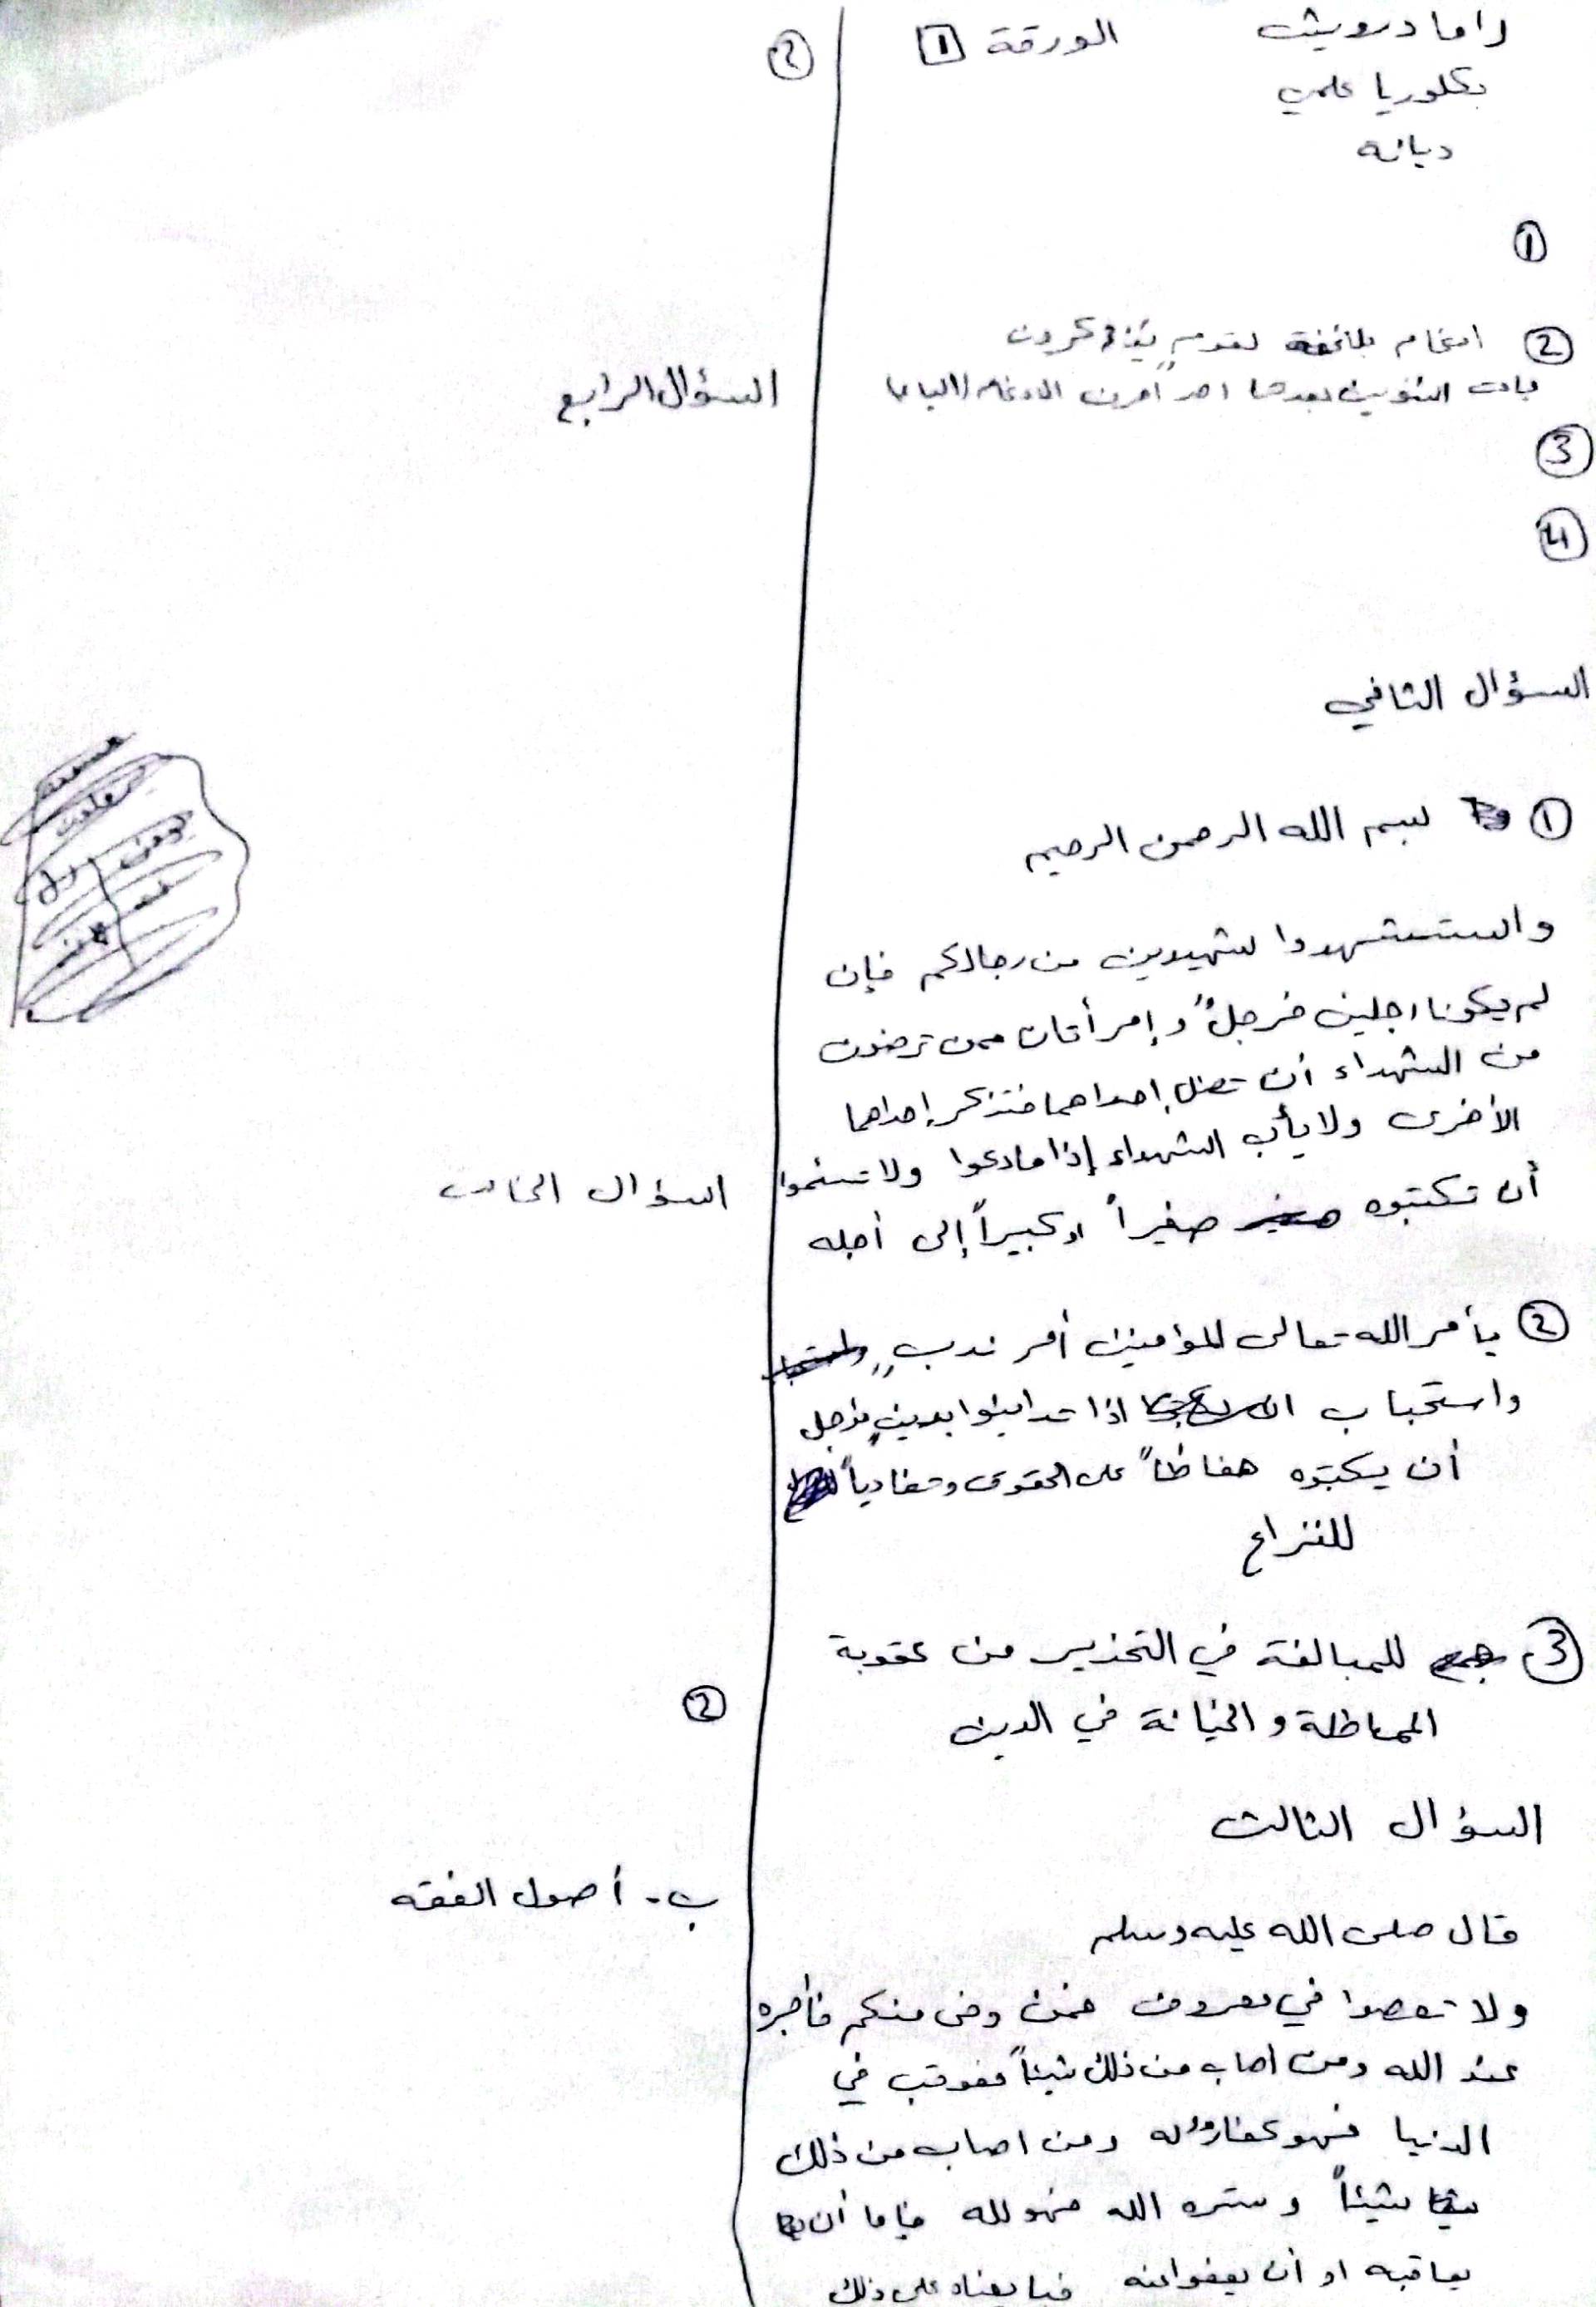 راما درويش
الورقة 1
بكلوريا علمي
ديانة
1
2 ادغام بلاغنة لقومٍ يتذكرون
جاءت التنوين بعدها احد احرف الادغام (الياء)
3
4
السؤال الثاني
1 بسم الله الرحمن الرحيم
واستشهدوا شهيدين من رجالكم فإن
لم يكونا رجلين فرجلٌ وإمرأتان ممن ترضون
من الشهداء أن تضل إحداهما فتذكر إحداهما
الأخرى ولا يأب الشهداء إذا ما دعوا ولا تسئموا
أن تكتبوه صغيراً او كبيراً إلى أجله
2 يأمر الله تعالى المؤمنين أمر ندبٍ
واستحباب اذا تداينوا بدينٍ مؤجل
أن يكتبوه حفاظاً على الحقوق وتفادياً
للنزاع
3 للمبالغة في التحذير من عقوبة
المماطلة و الخيانة في الدين
السؤال الثالث
قال صلى الله عليه وسلم
ولا تعصوا في معروف فمن وفى منكم فأجره
عند الله ومن اصاب من ذلك شيئاً فعوقب في
الدنيا فهو كفارة له ومن اصاب من ذلك
شيئاً وستره الله فهو لله فإما أن
يعاقبه او أن يعفوا عنه فبايعناه على ذلك
2
السؤال الرابع
السؤال الخامس
2
ب - أصول الفقه